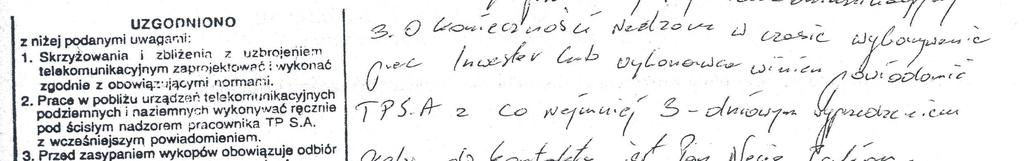 UZGODNIONO
z niżej podanymi uwagami:
1. Skrzyżowania i zbliżenia z uzbrojeniem
telekomunikacyjnym zaprojektować i wykonać
zgodnie z obowiązującymi normami.
2. Prace w pobliżu urządzeń telekomunikacyjnych
podziemnych i naziemnych wykonywać ręcznie
pod ścisłym nadzorem pracownika TP S.A.
z wcześniejszym powiadomieniem.
3. Przed zasypaniem wykopów obowiązuje odbiór
3. O konieczności nadzoru w czasie wykonywania
prac Inwestor lub wykonawca winien powiadomić
TP S.A z co najmniej 3-dniowym wyprzedzeniem
do kontaktu jest Pan